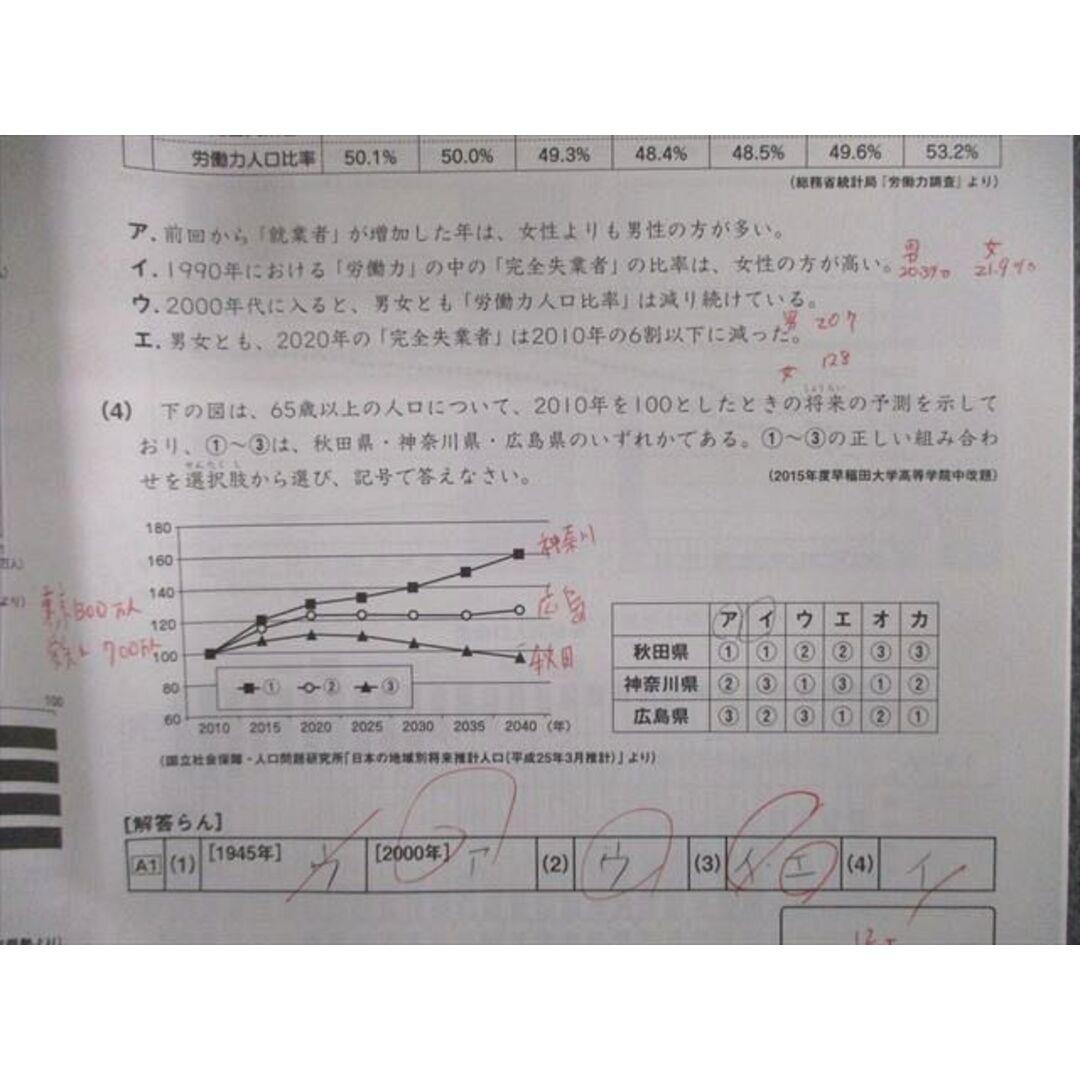 労働力人口比率 50.1% 50.0% 49.3% 48.4% 48.5% 49.6% 53.2%
(総務省統計局「労働力調査」より)
ア. 前回から「就業者」が増加した年は、女性よりも男性の方が多い。
イ. 1990年における「労働力」の中の「完全失業者」の比率は、女性の方が高い。
男 女
ウ. 2000年代に入ると、男女とも「労働力人口比率」は減り続けている。
エ. 男女とも、2020年の「完全失業者」は2010年の6割以下に減った。
男 207
女 128
(4) 下の図は、65歳以上の人口について、2010年を100としたときの将来の予測を示して
おり、①〜③は、秋田県・神奈川県・広島県のいずれかである。①〜③の正しい組み合わ
せを選択肢から選び、記号で答えなさい。
(2015年度早稲田大学高等学院中改題)
180
160
140
120
100
80
60
神奈川
広島
秋田
① ② ③
2010 2015 2020 2025 2030 2035 2040 (年)
(国立社会保障・人口問題研究所「日本の地域別将来推計人口(平成25年3月推計)」より)
ア イ ウ エ オ カ
秋田県 ① ① ② ② ③ ③
神奈川県 ② ③ ① ③ ① ②
広島県 ③ ② ③ ① ② ①
100
[解答らん]
A1 (1) [1945年] ウ [2000年] ア (2) ウ (3) イ・エ (4) イ